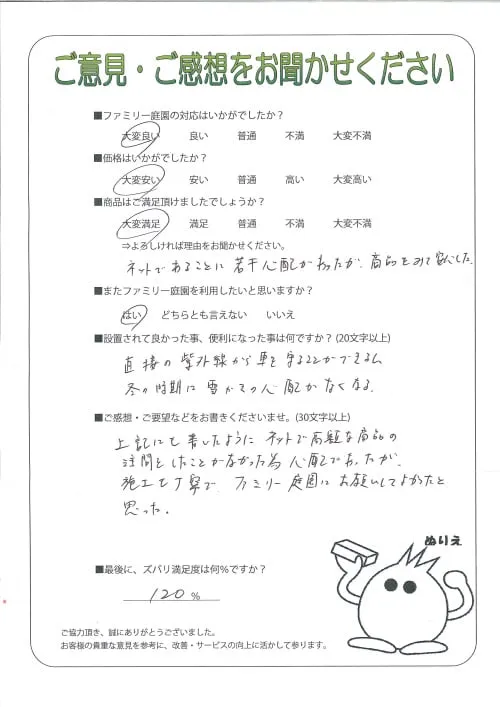 ご意見・ご感想をお聞かせください
■ファミリー庭園の対応はいかがでしたか？
大変良い 良い 普通 不満 大変不満
■価格はいかがでしたか？
大変安い 安い 普通 高い 大変高い
■商品はご満足頂けましたでしょうか？
大変満足 満足 普通 不満 大変不満
⇒よろしければ理由をお聞かせください。
ネットであることに若干心配があったが、商品をみて安心した。
■またファミリー庭園を利用したいと思いますか？
はい どちらとも言えない いいえ
■設置されて良かった事、便利になった事は何ですか？(20文字以上)
直接の紫外線から車を守ることができるし
冬の時期に雪かきの心配がなくなる。
■ご感想・ご要望などをお書きくださいませ。(30文字以上)
上記にも書いたように ネットで高額な商品の
注関をしたことがなかった為 心配であったが、
施工も丁寧で、ファミリー庭園にお願いしてよかったと
思った。
ぬりえ
■最後に、ズバリ満足度は何％ですか？
120 %
ご協力頂き、誠にありがとうございました。
お客様の貴重な意見を参考に、改善・サービスの向上に活かして参ります。